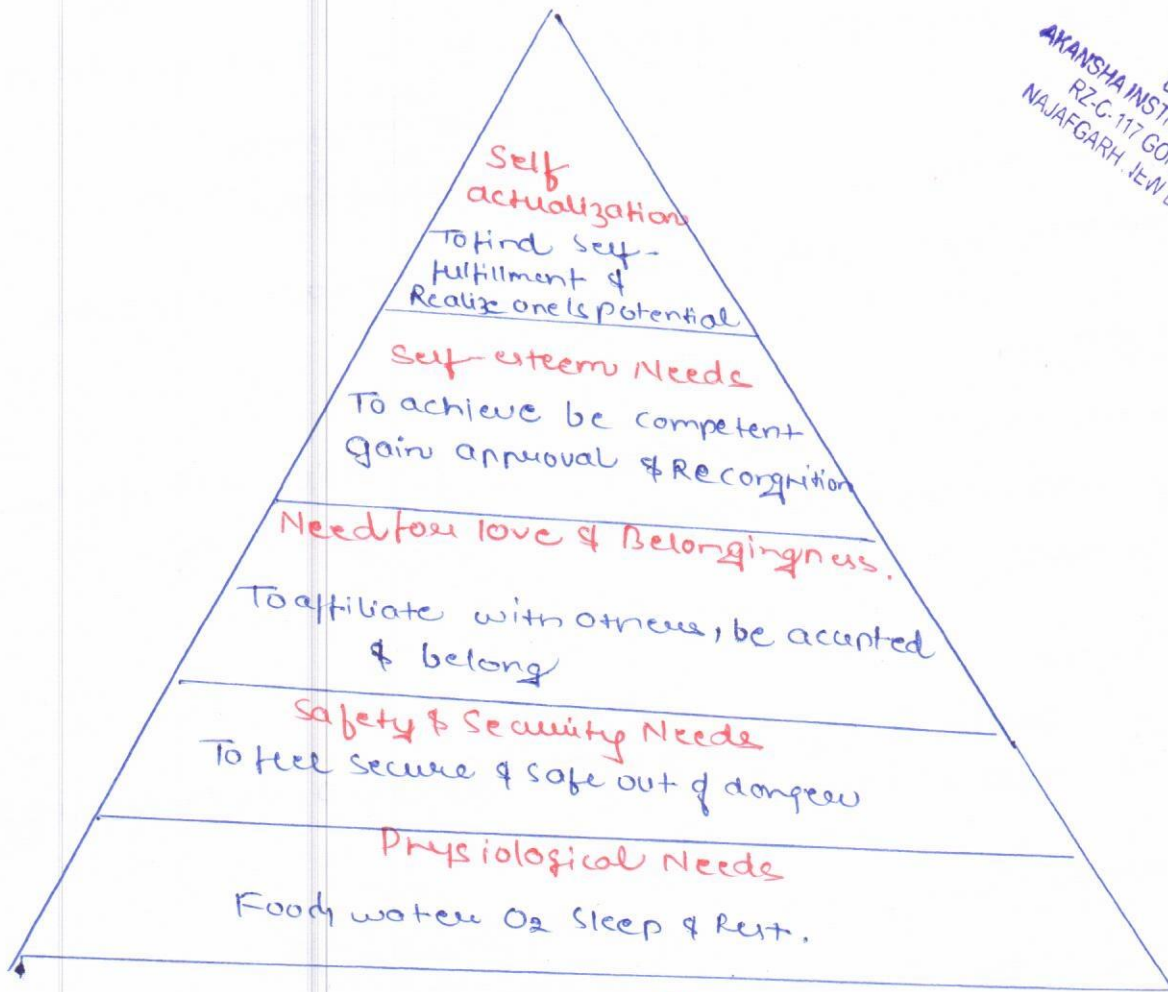 AKANSHA INST
RZ-G-117 GO
NAJAFGARH, NEW
Self
actualization
To find self-
fulfillment &
Realize one's potential
Self-esteem Needs
To achieve be competent
gain approval & Recorgnition
Need for love & Belongingness.
To affiliate with others, be accepted
& belong
Safety & Security Needs
To feel secure & safe out of danger
Physiological Needs
Food, water O2 Sleep & Rest.